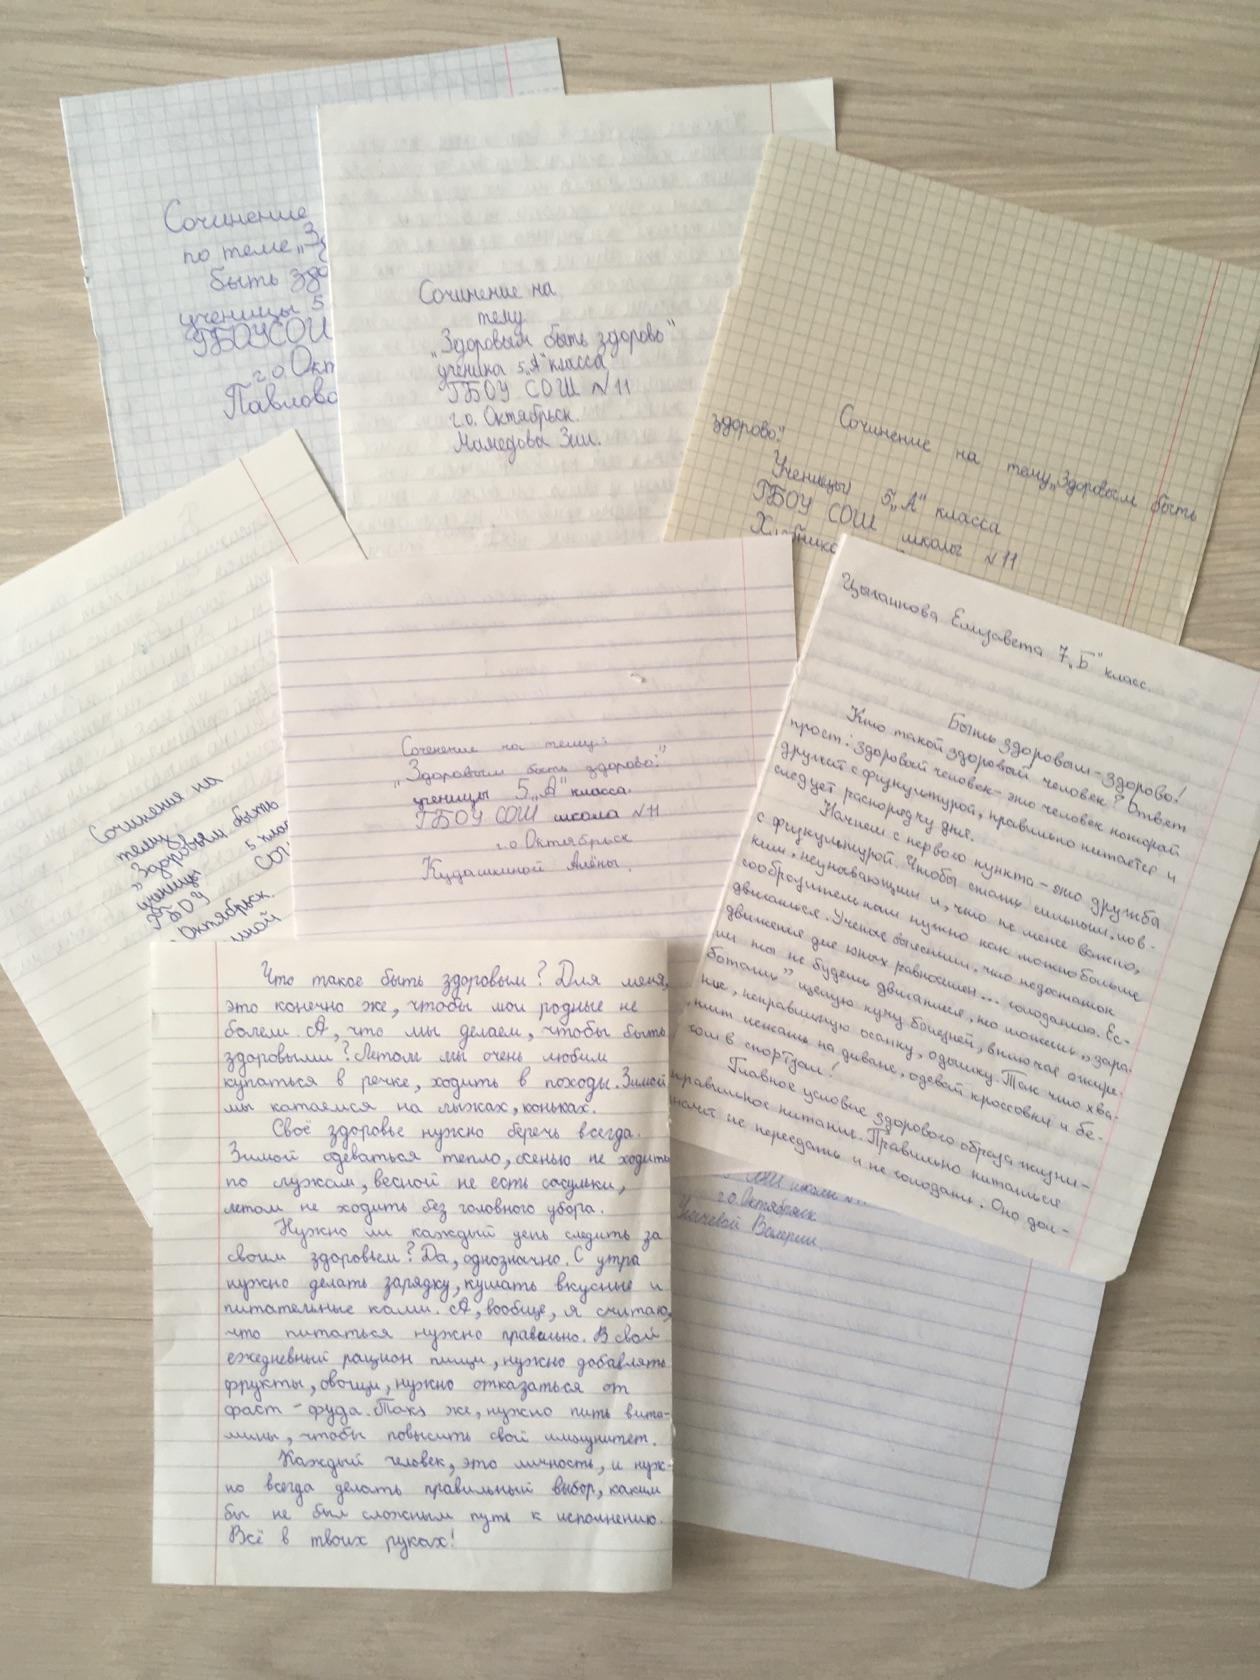 Сочинение
по теме „З
быть здо
ученицы 5
ГБОУСОШ
г.о. Окт
Павлово
Сочинение на
тему
„Здоровым быть здорово"
ученика 5„А" класса
ГБОУ СОШ №11
г.о. Октябрьск.
Мамедова Зии.
Сочинение на тему „Здоровым быть
здорово".
Ученицы 5„А" класса
ГБОУ СОШ школы №11
Сочинения на
тему
„Здоровым быть
ученицы 5 клас
ГБОУ СОШ
Октябрьск.
Соченение на тему:
„Здоровым быть здорово!"
ученицы 5„А" класса.
ГБОУ СОШ школа №11
г.о Октябрьск
Кудашкиной Алёны.
Цыганкова Елизавета 7„Б" класс.
Быть здоровым - здорово!
Кто такой здоровый человек? Ответ
прост: здоровый человек - это человек который
дружит с физкультурой, правильно питается и
следует распорядку дня.
Начнем с первого пункта - это дружба
с физкультурой. Чтобы стать сильным, лов-
ким, неунывающим и, что не менее важно,
сообразительным нужно как можно больше
двигаться. Ученые выяснили, что недостаток
движения для юных равносилен... голоданию. Ес-
ли ты не будешь двигаться, то можешь „зара-
ботать" целую кучу болезней, включая ожире-
ние, неправильную осанку, одышку. Так что хва-
тит лежать на диване, одевай кроссовки и бе-
гом в спортзал!
Главное условие здорового образа жизни -
правильное питание. Правильно питаться
значит не переедать и не голодать. Оно дол-
школы
г.о. Октябрьск
Валерии.
Что такое быть здоровым? Для меня,
это конечно же, чтобы мои родные не
болели. А, что мы делаем, чтобы быть
здоровыми? Летом мы очень любим
купаться в речке, ходить в походы. Зимой
мы катаемся на лыжах, коньках.
Своё здоровье нужно беречь всегда.
Зимой одеваться тепло, осенью не ходить
по лужам, весной не есть сосульки,
летом не ходить без головного убора.
Нужно ли каждый день следить за
своим здоровьем? Да, однозначно. С утра
нужно делать зарядку, кушать вкусные и
питательные каши. А, вообще, я считаю,
что питаться нужно правильно. В свой
ежедневный рацион пищи, нужно добавлять
фрукты, овощи, нужно отказаться от
фаст-фуда. Так же, нужно пить вита-
мины, чтобы повысить свой иммунитет.
Каждый человек, это личность, и нуж-
но всегда делать правильный выбор, каким
бы не был сложным путь к исполнению.
Всё в твоих руках!